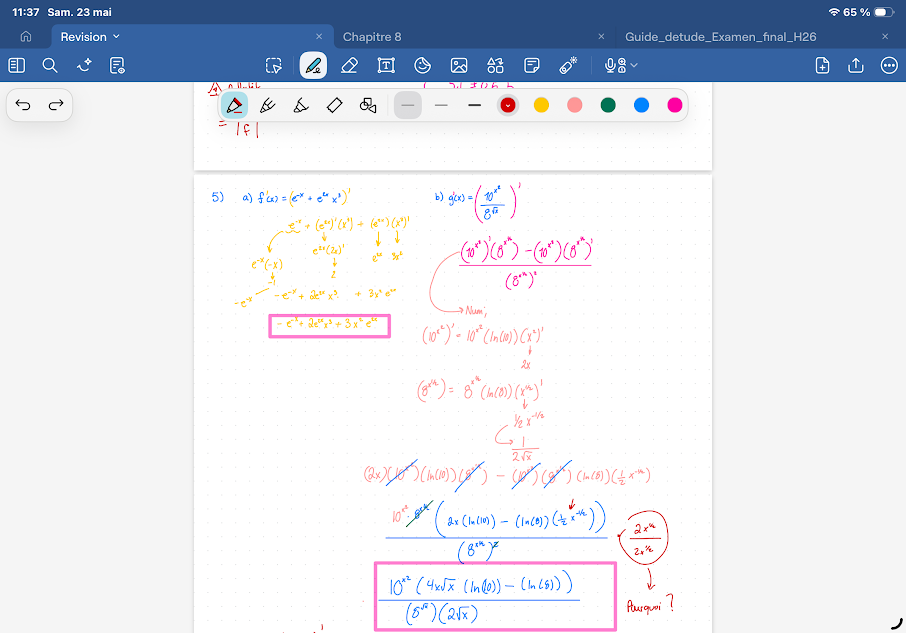 11:37 Sam. 23 mai
65 %
Revision
Chapitre 8
Guide_detude_Examen_final_H26
= |f|
5) a) f'(x) = (e⁻ˣ + e²ˣ x³)'
b) g'(x) = (10^x² / 8^√x)'
e⁻ˣ + (e²ˣ)'(x³) + (e²ˣ)(x³)'
e⁻ˣ(-x)'
e²ˣ(2x)'
e²ˣ 3x²
-1
2
-e⁻ˣ
-e⁻ˣ + 2e²ˣ x³ + 3x² e²ˣ
-e⁻ˣ + 2e²ˣ x³ + 3x² e²ˣ
(10^x²)'(8^x^1/2) - (10^x²)(8^x^1/2)'
(8^x^1/2)²
Num;
(10^x²)' = 10^x² (ln(10))(x²)'
2x
(8^x^1/2) = 8^x^1/2 (ln(8))(x^1/2)'
1/2 x^-1/2
1
2√x
(2x)(10^x²)(ln(10))(8^x^1/2) - (10^x²)(8^x^1/2)(ln(8))(1/2 x^-1/2)
10^x² · 8^x^1/2 (2x(ln(10)) - (ln(8))(1/2 x^-1/2))
(8^x^1/2)²
2x^1/2
2x^1/2
Pourquoi ?
10^x² (4x√x (ln(10)) - (ln(8)))
(8^√x)(2√x)